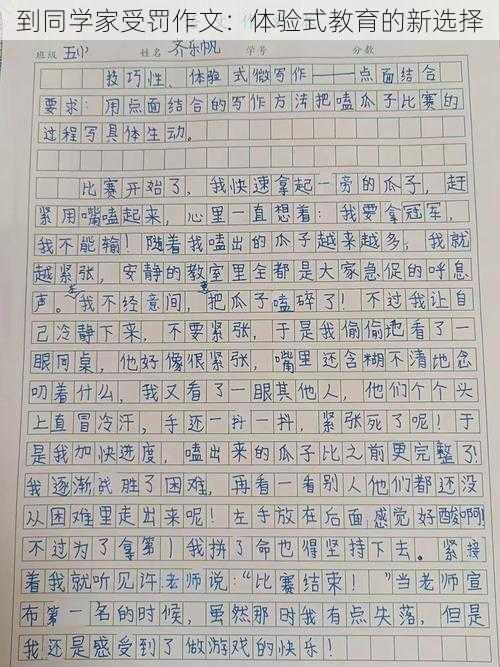 到同学家受罚作文：体验式教育的新选择
班级 五1 姓名 齐乐帆 学号 分数
技巧性、体验式微写作——点面结合
要求：用点面结合的写作方法把嗑瓜子比赛的
过程写具体生动。
比赛开始了，我快速拿起一旁的瓜子，赶
紧用嘴嗑起来，心里一直想着：我要拿冠军，
我不能输！随着我嗑出的瓜子越来越多，我就
越紧张，安静的教室里全都是大家急促的呼息
声。我不经意间，把瓜子嗑碎了！不过我让自
己冷静下来，不要紧张，于是我偷偷地看了一
眼同桌，他好像很紧张，嘴里还含糊不清地念
叨着什么，我又看了一眼其他人，他们个个头
上直冒冷汗，手还一抖一抖，紧张死了呢！于
是我加快进度，嗑出来的瓜子比之前更完整了！
我逐渐战胜了困难，再看一看别人他们都还没
从困难里走出来呢！左手放在后面感觉好酸啊！
不过为了拿第1我拼了命也得坚持下去。紧接
着我就听见许老师说：“比赛结束！”当老师宣
布第一名的时候，虽然那时我有点失落，但是
我还是感受到了做游戏的快乐！